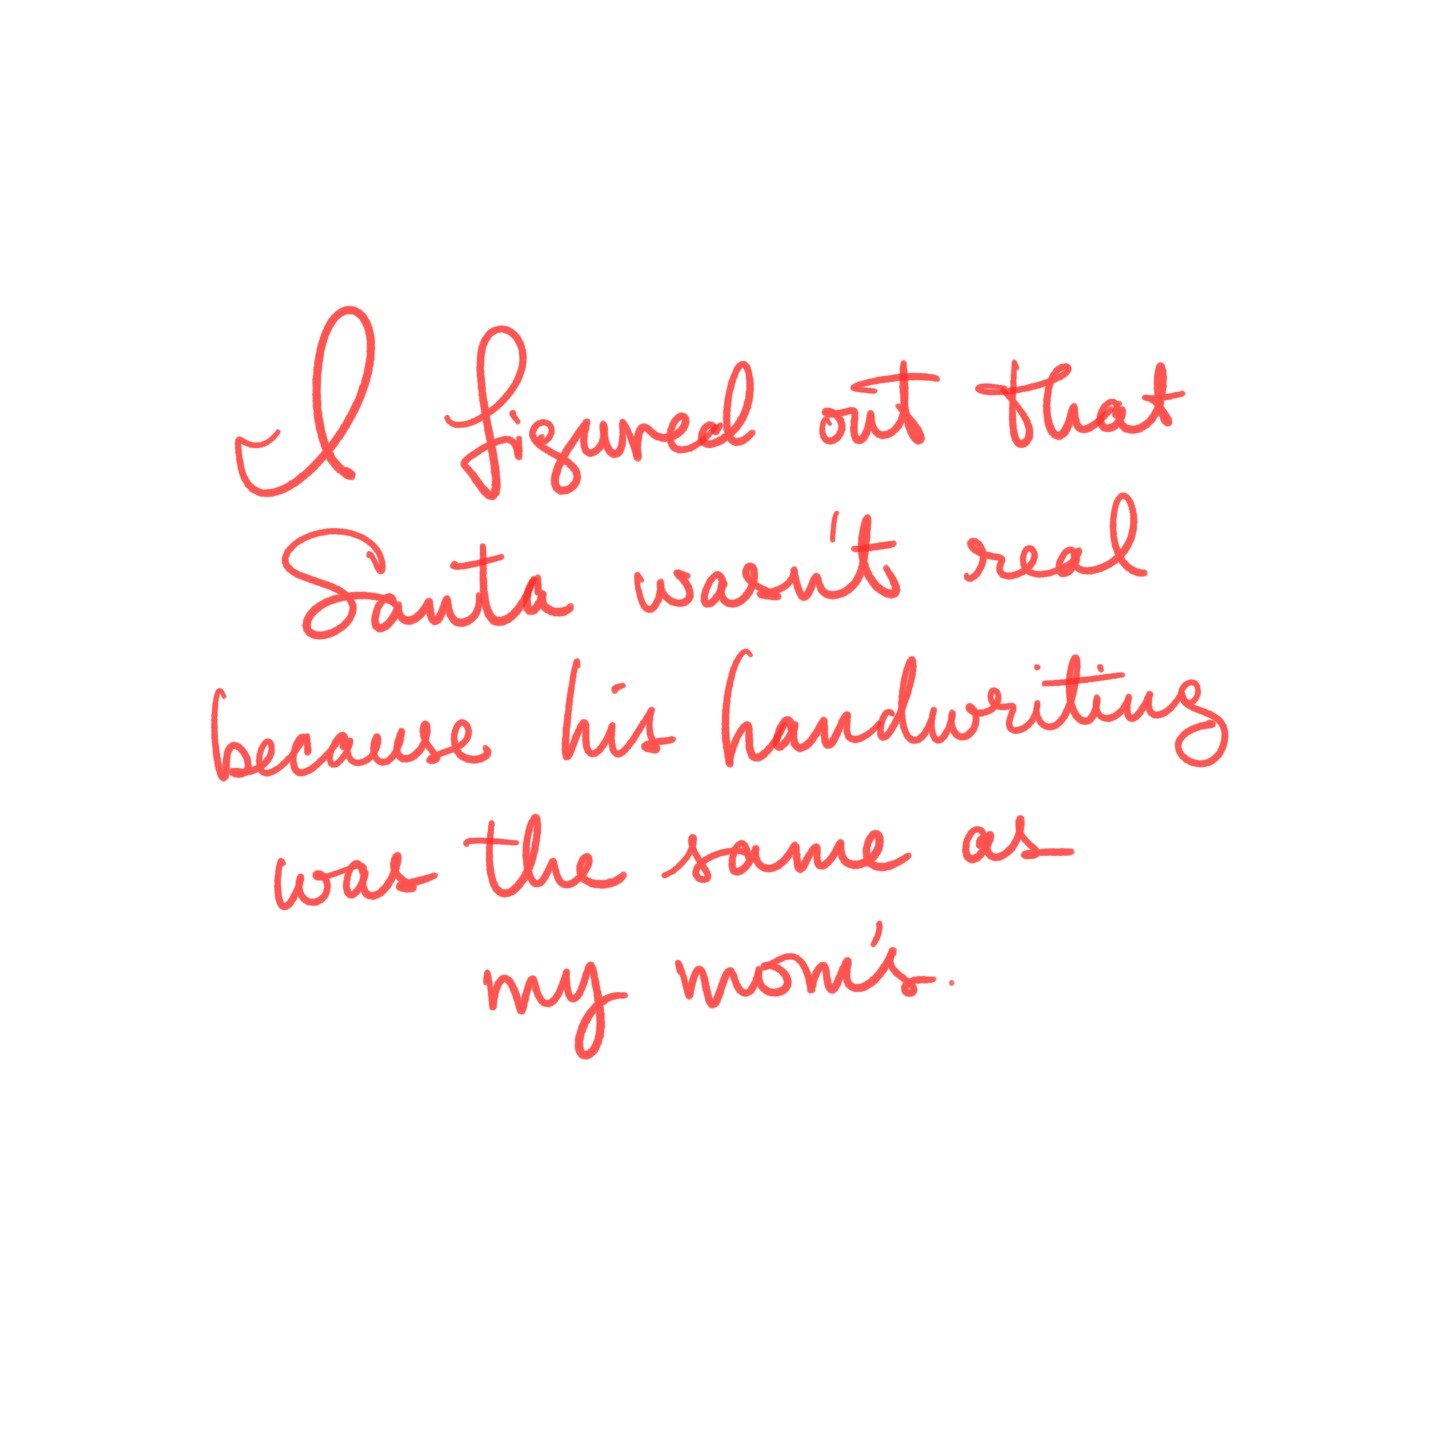 I figured out that
Santa wasn't real
because his handwriting
was the same as
my mom's.